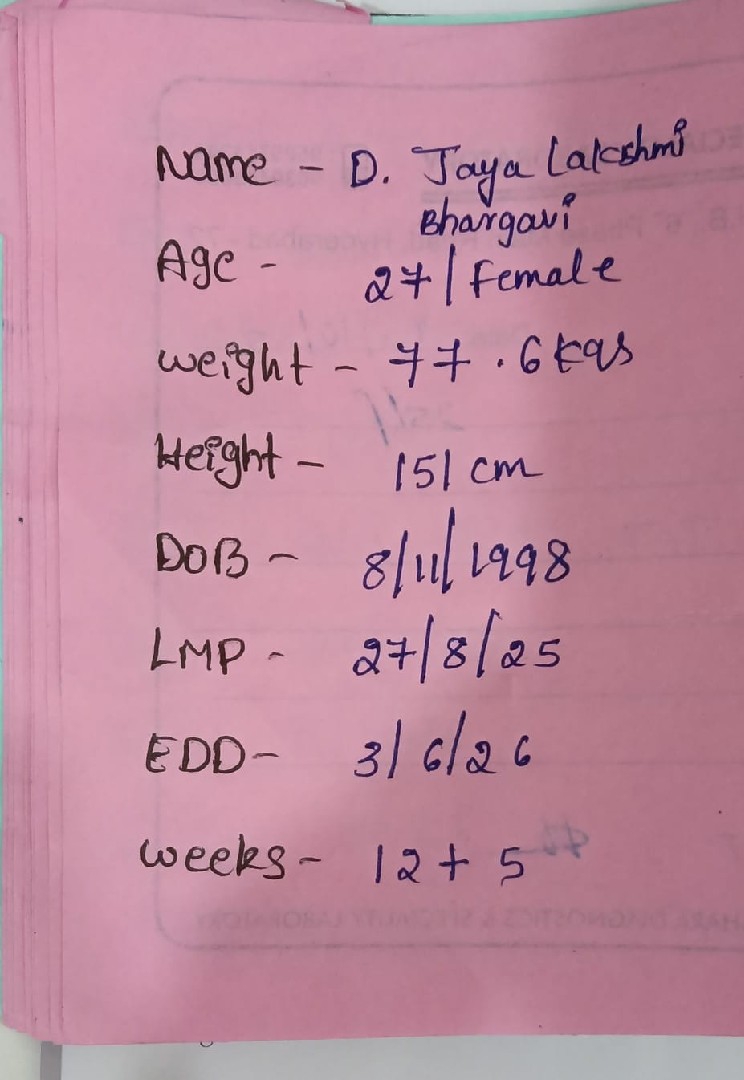 Name - D. Jaya Lakshmi
Bhargavi
Age - 27/Female
weight - 77.6 kgs
Height - 151 cm
DOB - 8/11/1998
LMP - 27/8/25
EDD - 3/6/26
weeks - 12+5